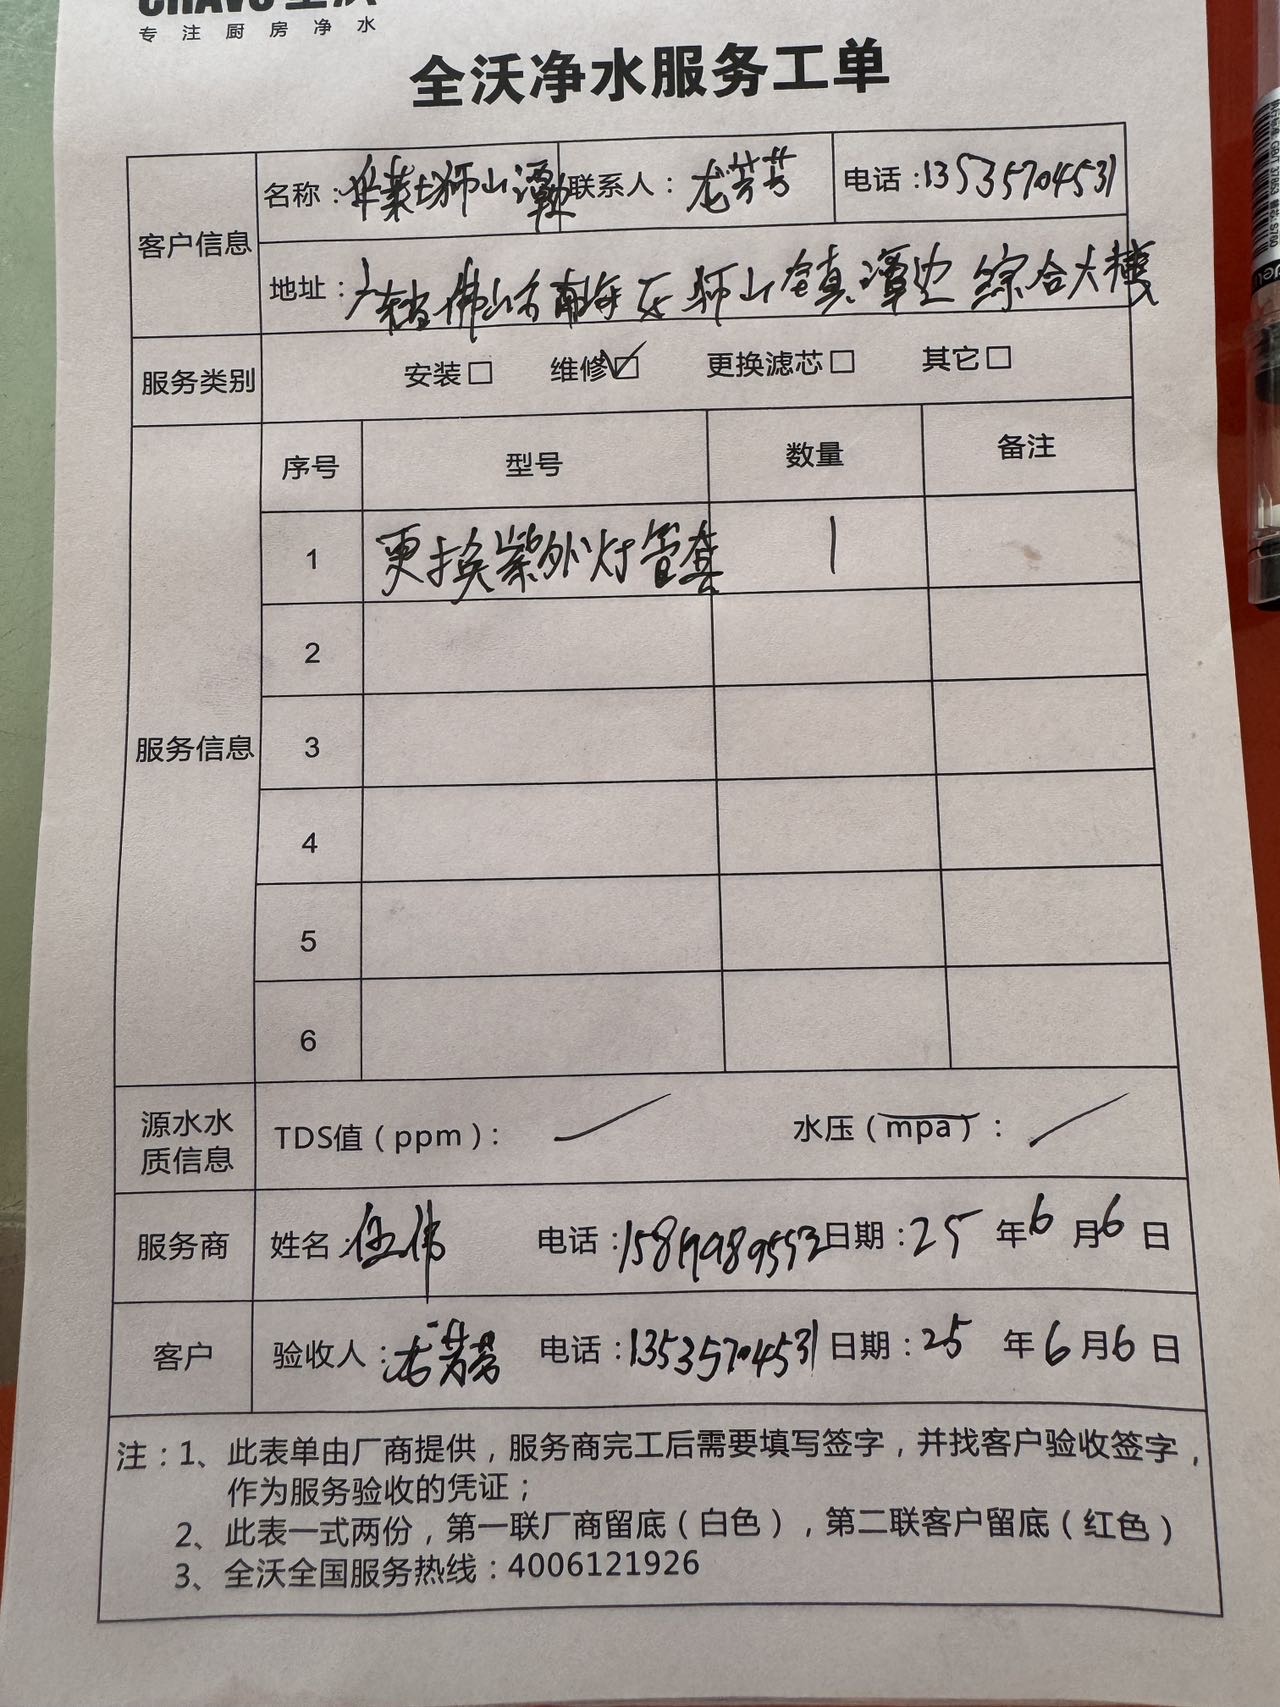 专注厨房净水
全沃净水服务工单
客户信息
名称：华莱士狮山潭 联系人：龙芳芳 电话：13535704531
地址：广东省佛山市南海区狮山镇潭边综合大楼
服务类别 安装□ 维修☑ 更换滤芯□ 其它□
服务信息
序号 型号 数量 备注
1 更换紫外灯管套 1
2
3
4
5
6
源水水质信息 TDS值（ppm）： 水压（mpa）：
服务商 姓名：伍伟 电话：15819989553 日期：25年6月6日
客户 验收人：龙芳芳 电话：13535704531 日期：25年6月6日
注：1、此表单由厂商提供，服务商完工后需要填写签字，并找客户验收签字，
作为服务验收的凭证；
2、此表一式两份，第一联厂商留底（白色），第二联客户留底（红色）
3、全沃全国服务热线：4006121926